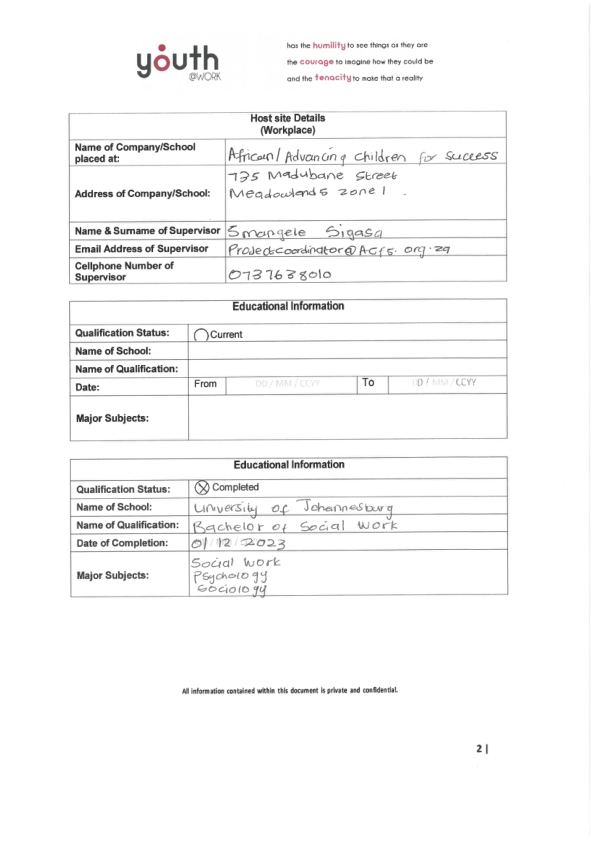 youth
@WORK
has the humility to see things as they are
the courage to imagine how they could be
and the tenacity to make that a reality
Host site Details
(Workplace)
Name of Company/School placed at: African/Advancing Children for Success
Address of Company/School: 735 Madubane Street
Meadowlands zone 1 .
Name & Surname of Supervisor Smangele Sigasa
Email Address of Supervisor Projectcoordinator@Acfs.org.za
Cellphone Number of Supervisor 0737638010
Educational Information
Qualification Status: Current
Name of School:
Name of Qualification:
Date: From DD / MM / CCYY To DD / MM / CCYY
Major Subjects:
Educational Information
Qualification Status: Completed
Name of School: University of Johannesburg
Name of Qualification: Bachelor of Social Work
Date of Completion: 01/12/2023
Major Subjects: Social Work
Psychology
Sociology
All information contained within this document is private and confidential.
2 |